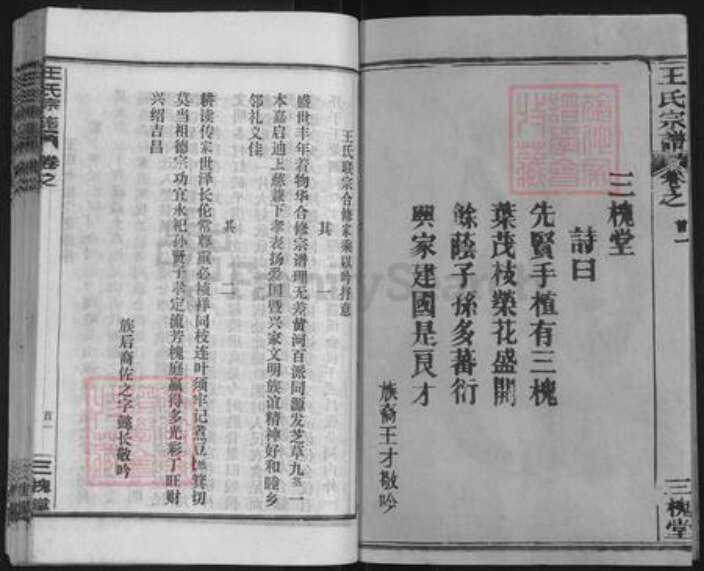 王氏宗譜
卷之一
首一
三槐堂
三槐堂
詩曰
先賢手植有三槐
葉茂枝榮花盛開
餘蔭子孫多蕃衍
興家建國是良才
族裔王才敬吟
王氏联宗合修家乘以吟抒意
其一
盛世丰年着物华合修宗谱理无差黄河百派同源发芝草九 一
本嘉启迪上慈兼下孝表扬爱国暨兴家文明族谊精神好和睦乡
邻礼义佳
其二
耕读传家世泽长伦常尊重必祯祥同枝连叶须牢记煮豆燃箕切
莫当祖德宗功宜永祀孙贤子孝定流芳槐庭赢得多光彩丁旺财
兴绍吉昌
族后裔佐之字懿长敬吟
王氏宗
卷之
首一
三槐堂
FamilySearch